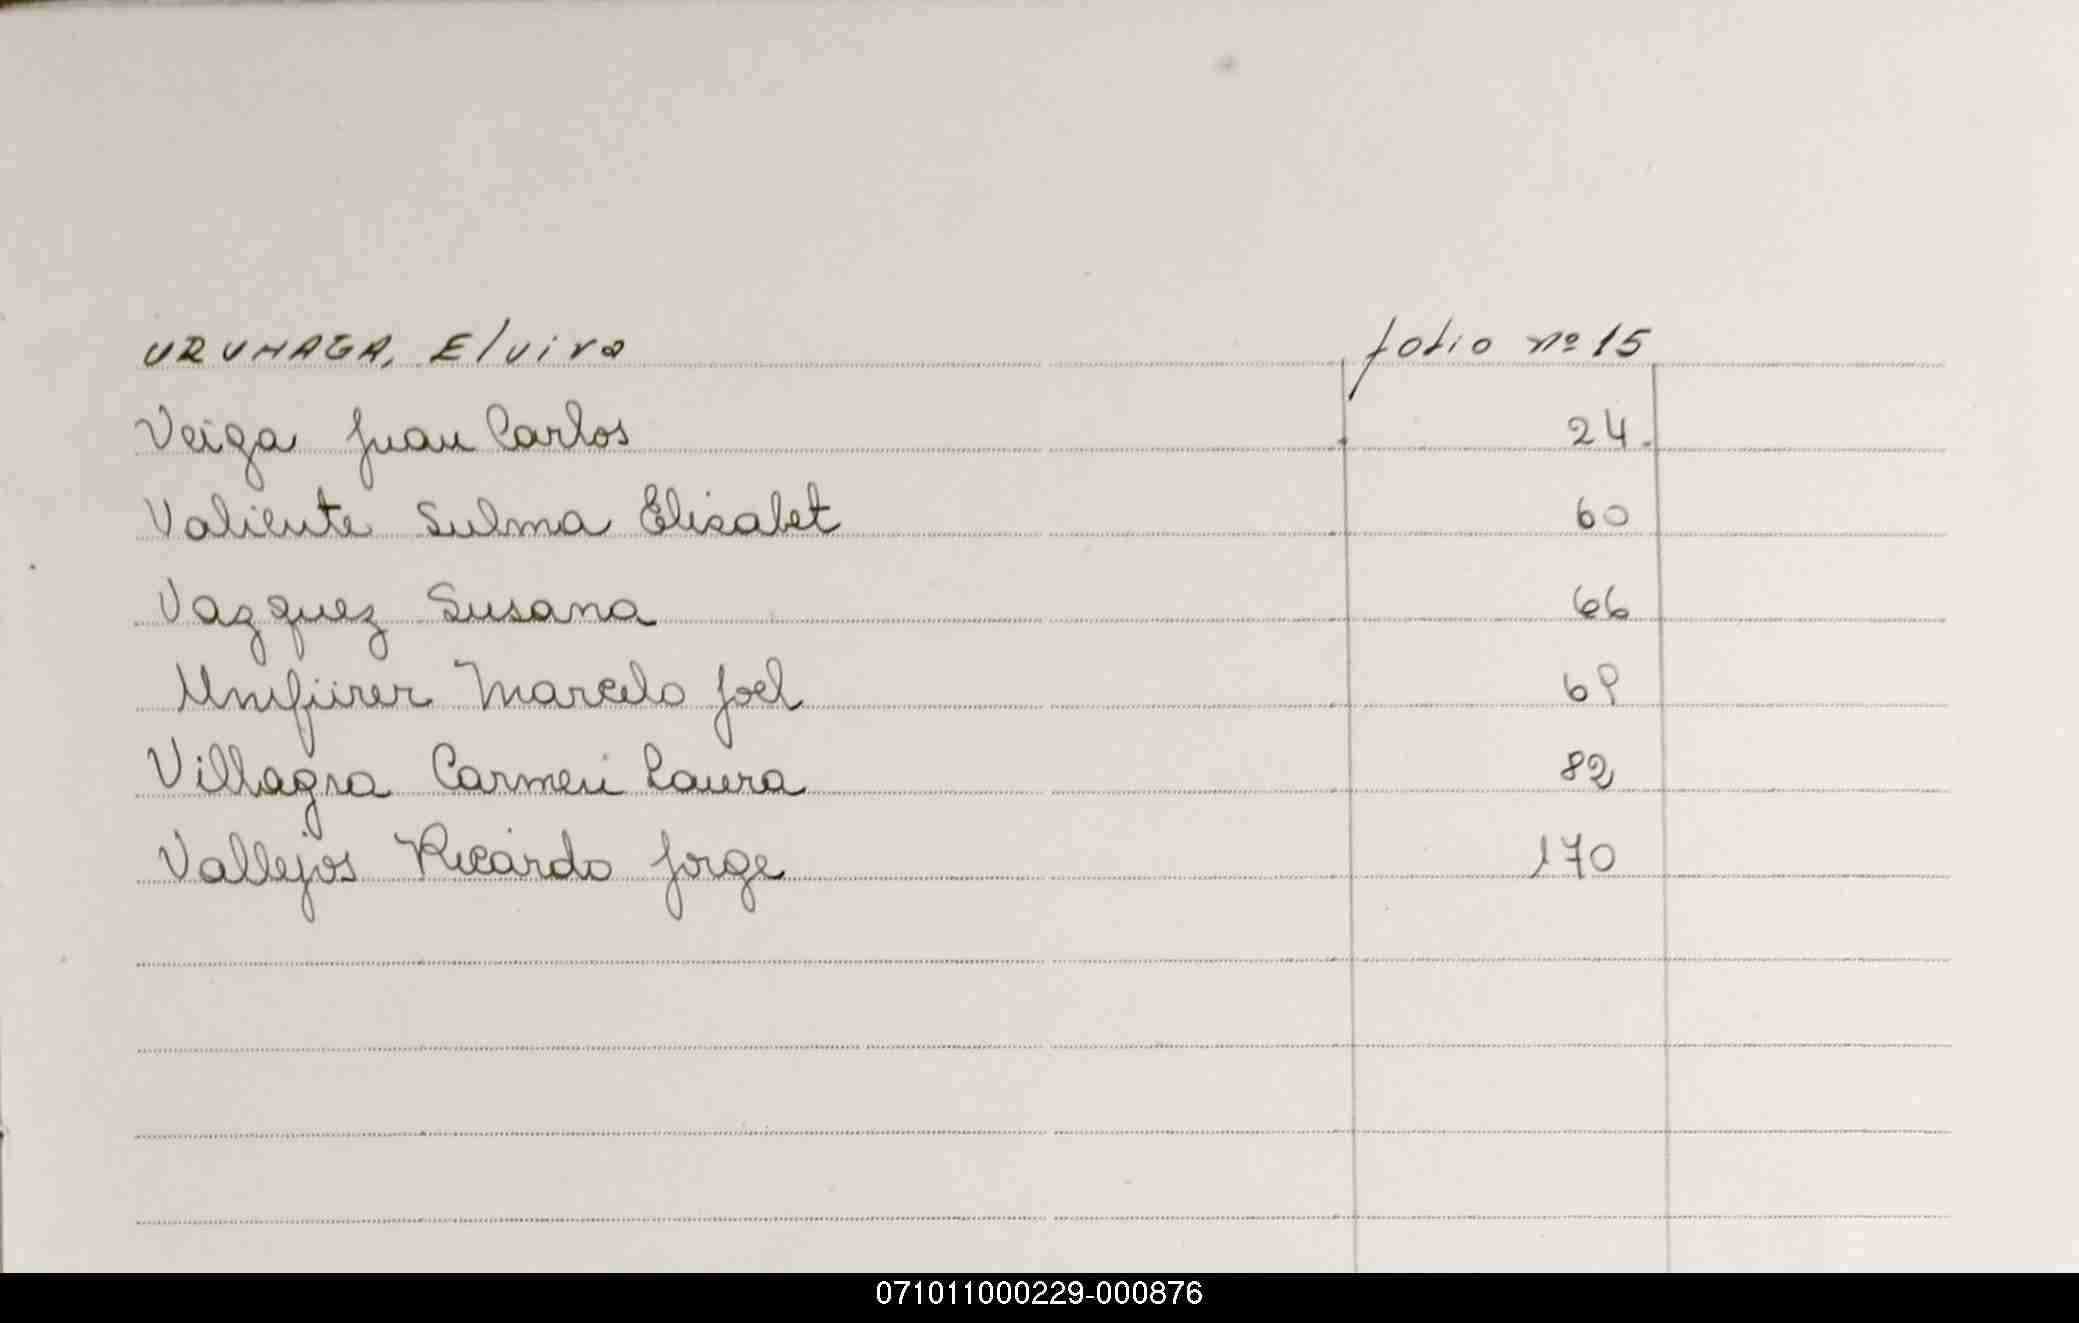 URUNAGA, Elvira folio nº 15
Veiga Juan Carlos 24.
Valiente Sulma Elisabet 60
Vazquez Susana 66
Marcelo Joel 69
Villagra Carmen Laura 82
Vallejos Ricardo Jorge 170
071011000229-000876